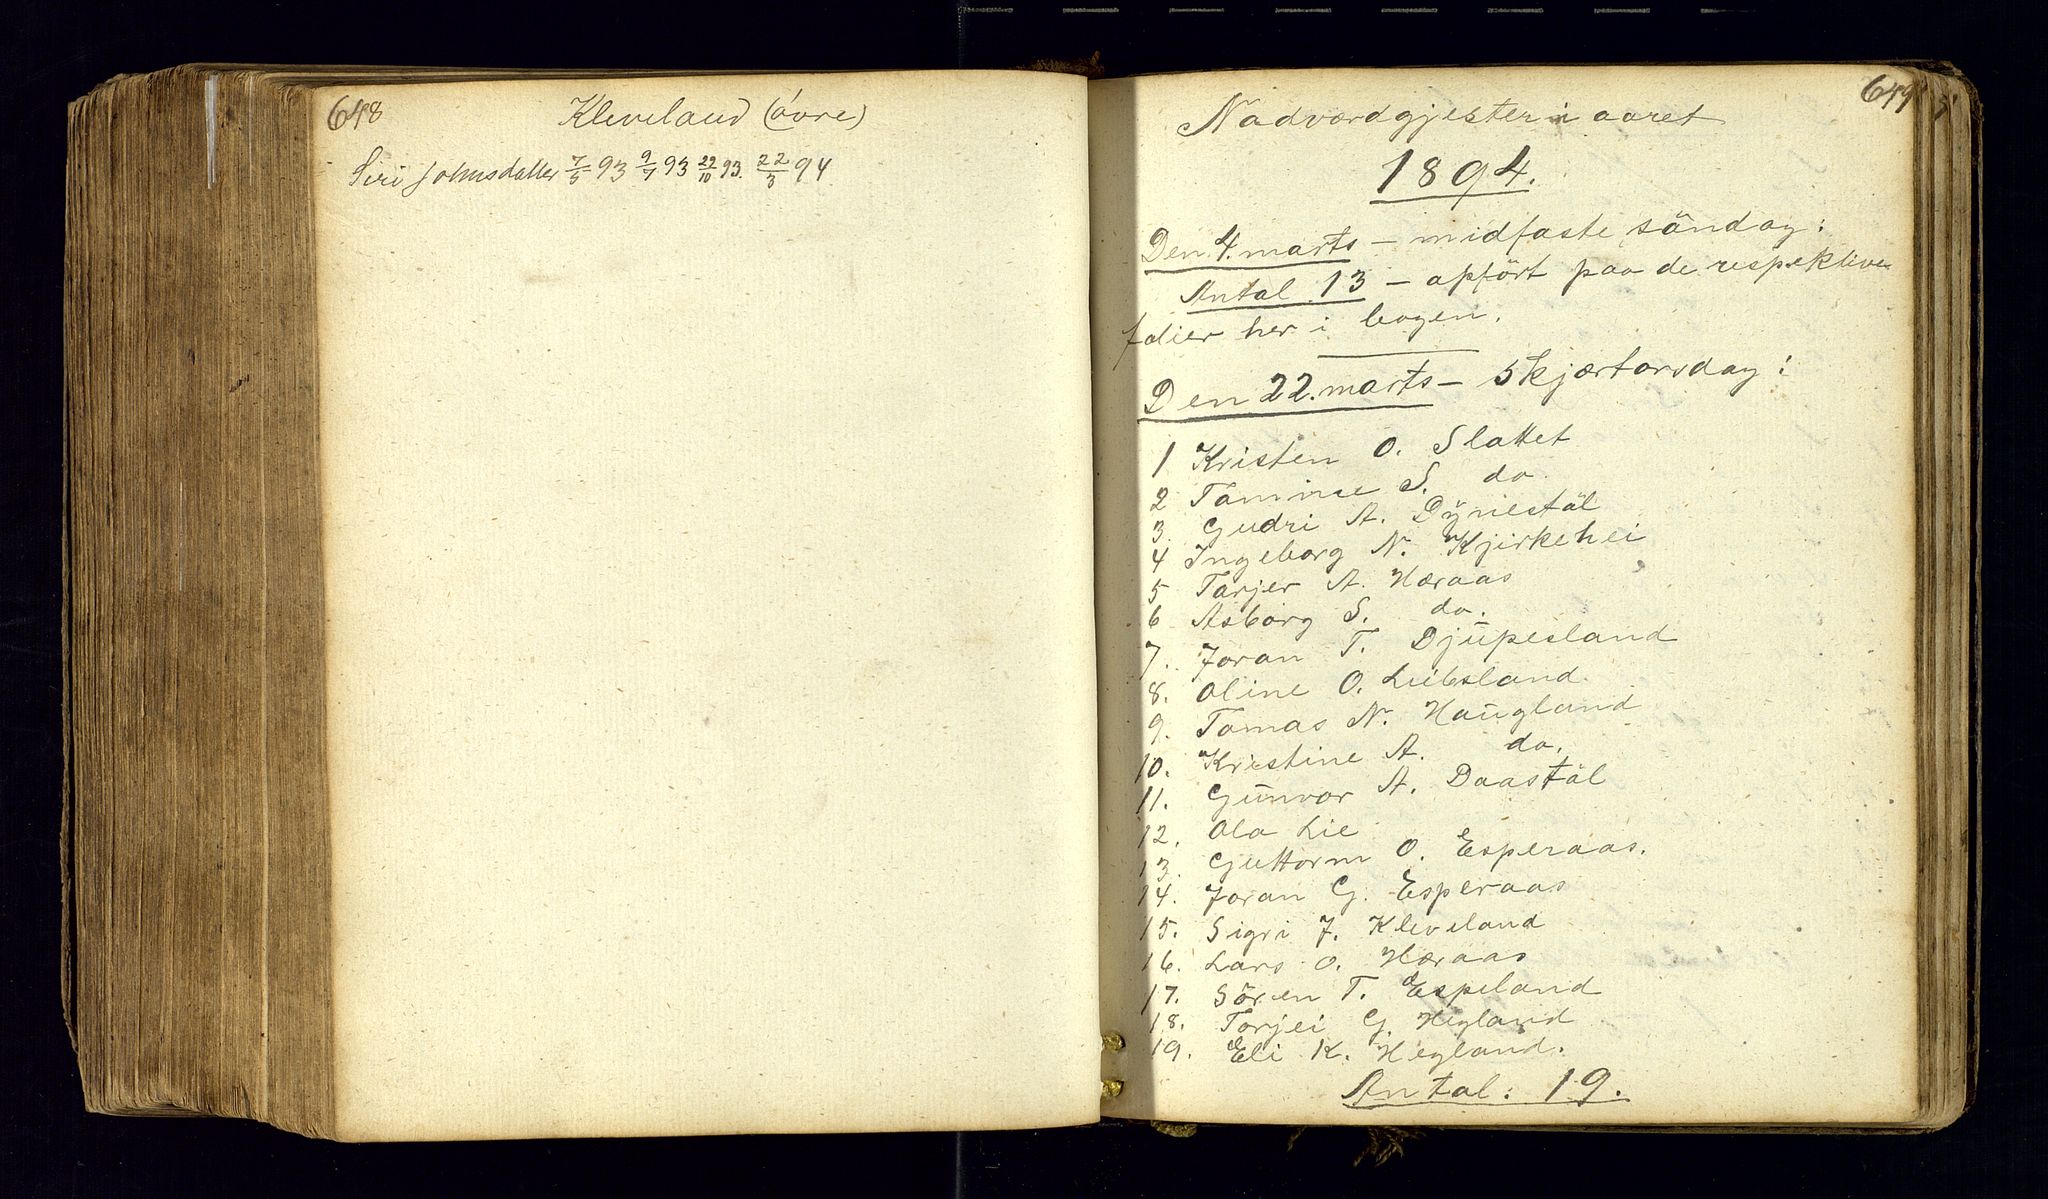 648
Kleveland (övre)
Siri Johnsdatter 7/5 93 9/7 93 29/10 93. 22/3 94
649
Nadværdgjester i aaret
1894.
Den 4. marts – midfaste söndag:
Antal 13 – opfört paa de respektive
folier her i bogen.
Den 22. marts – skjærtorsdag:
1 Kristen O. Slattet
2 Tomine S. do.
3. Gudri A. Dynestöl
4 Ingeborg N. Kjirkehei
5 Tarjer A. Høraas
6 Asborg S. do.
7. Joran T. Djupesland
8. Oline O. Leibsland.
9. Tomas N. Haugland
10. Kristine A. do.
11. Gunvor A. Daastöl
12. Ola Lie
13. Guttorm O. Esperaas.
14. Joran G. Esperaas
15. Sigri J. Kleveland
16. Lars O. Høraas
17. Sören T. Espeland
18. Torjei G. Hegland
19. Eli K. Hegland.
Antal: 19.